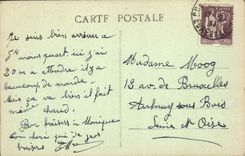 CARTE POSTALE
Je suis bien arrivée a
5h moins quart ici j'ai
20m a attendre il y a
beaucoup de monde
mais ça va bien il fait
chaud!
Bons baisers à Monique
de gros
Madame Moog
12 av. de Bruxelles
Aulnay sous Bois
Seine et Oise